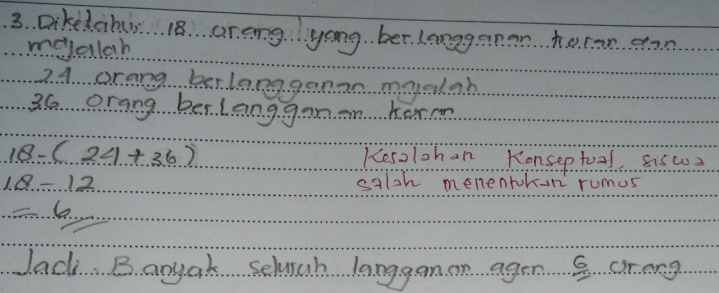 3. Diketahui: 18 orang yang berlangganan koran dan
majalah
24 orang berlangganan majalah
36 orang berlangganan koran
18 - ( 24 + 36 )
Kesalahan Konseptual, siswa
salah menentukan rumus
18 - 12
= 6
Jadi Banyak seluruh langganan agen 6 orang